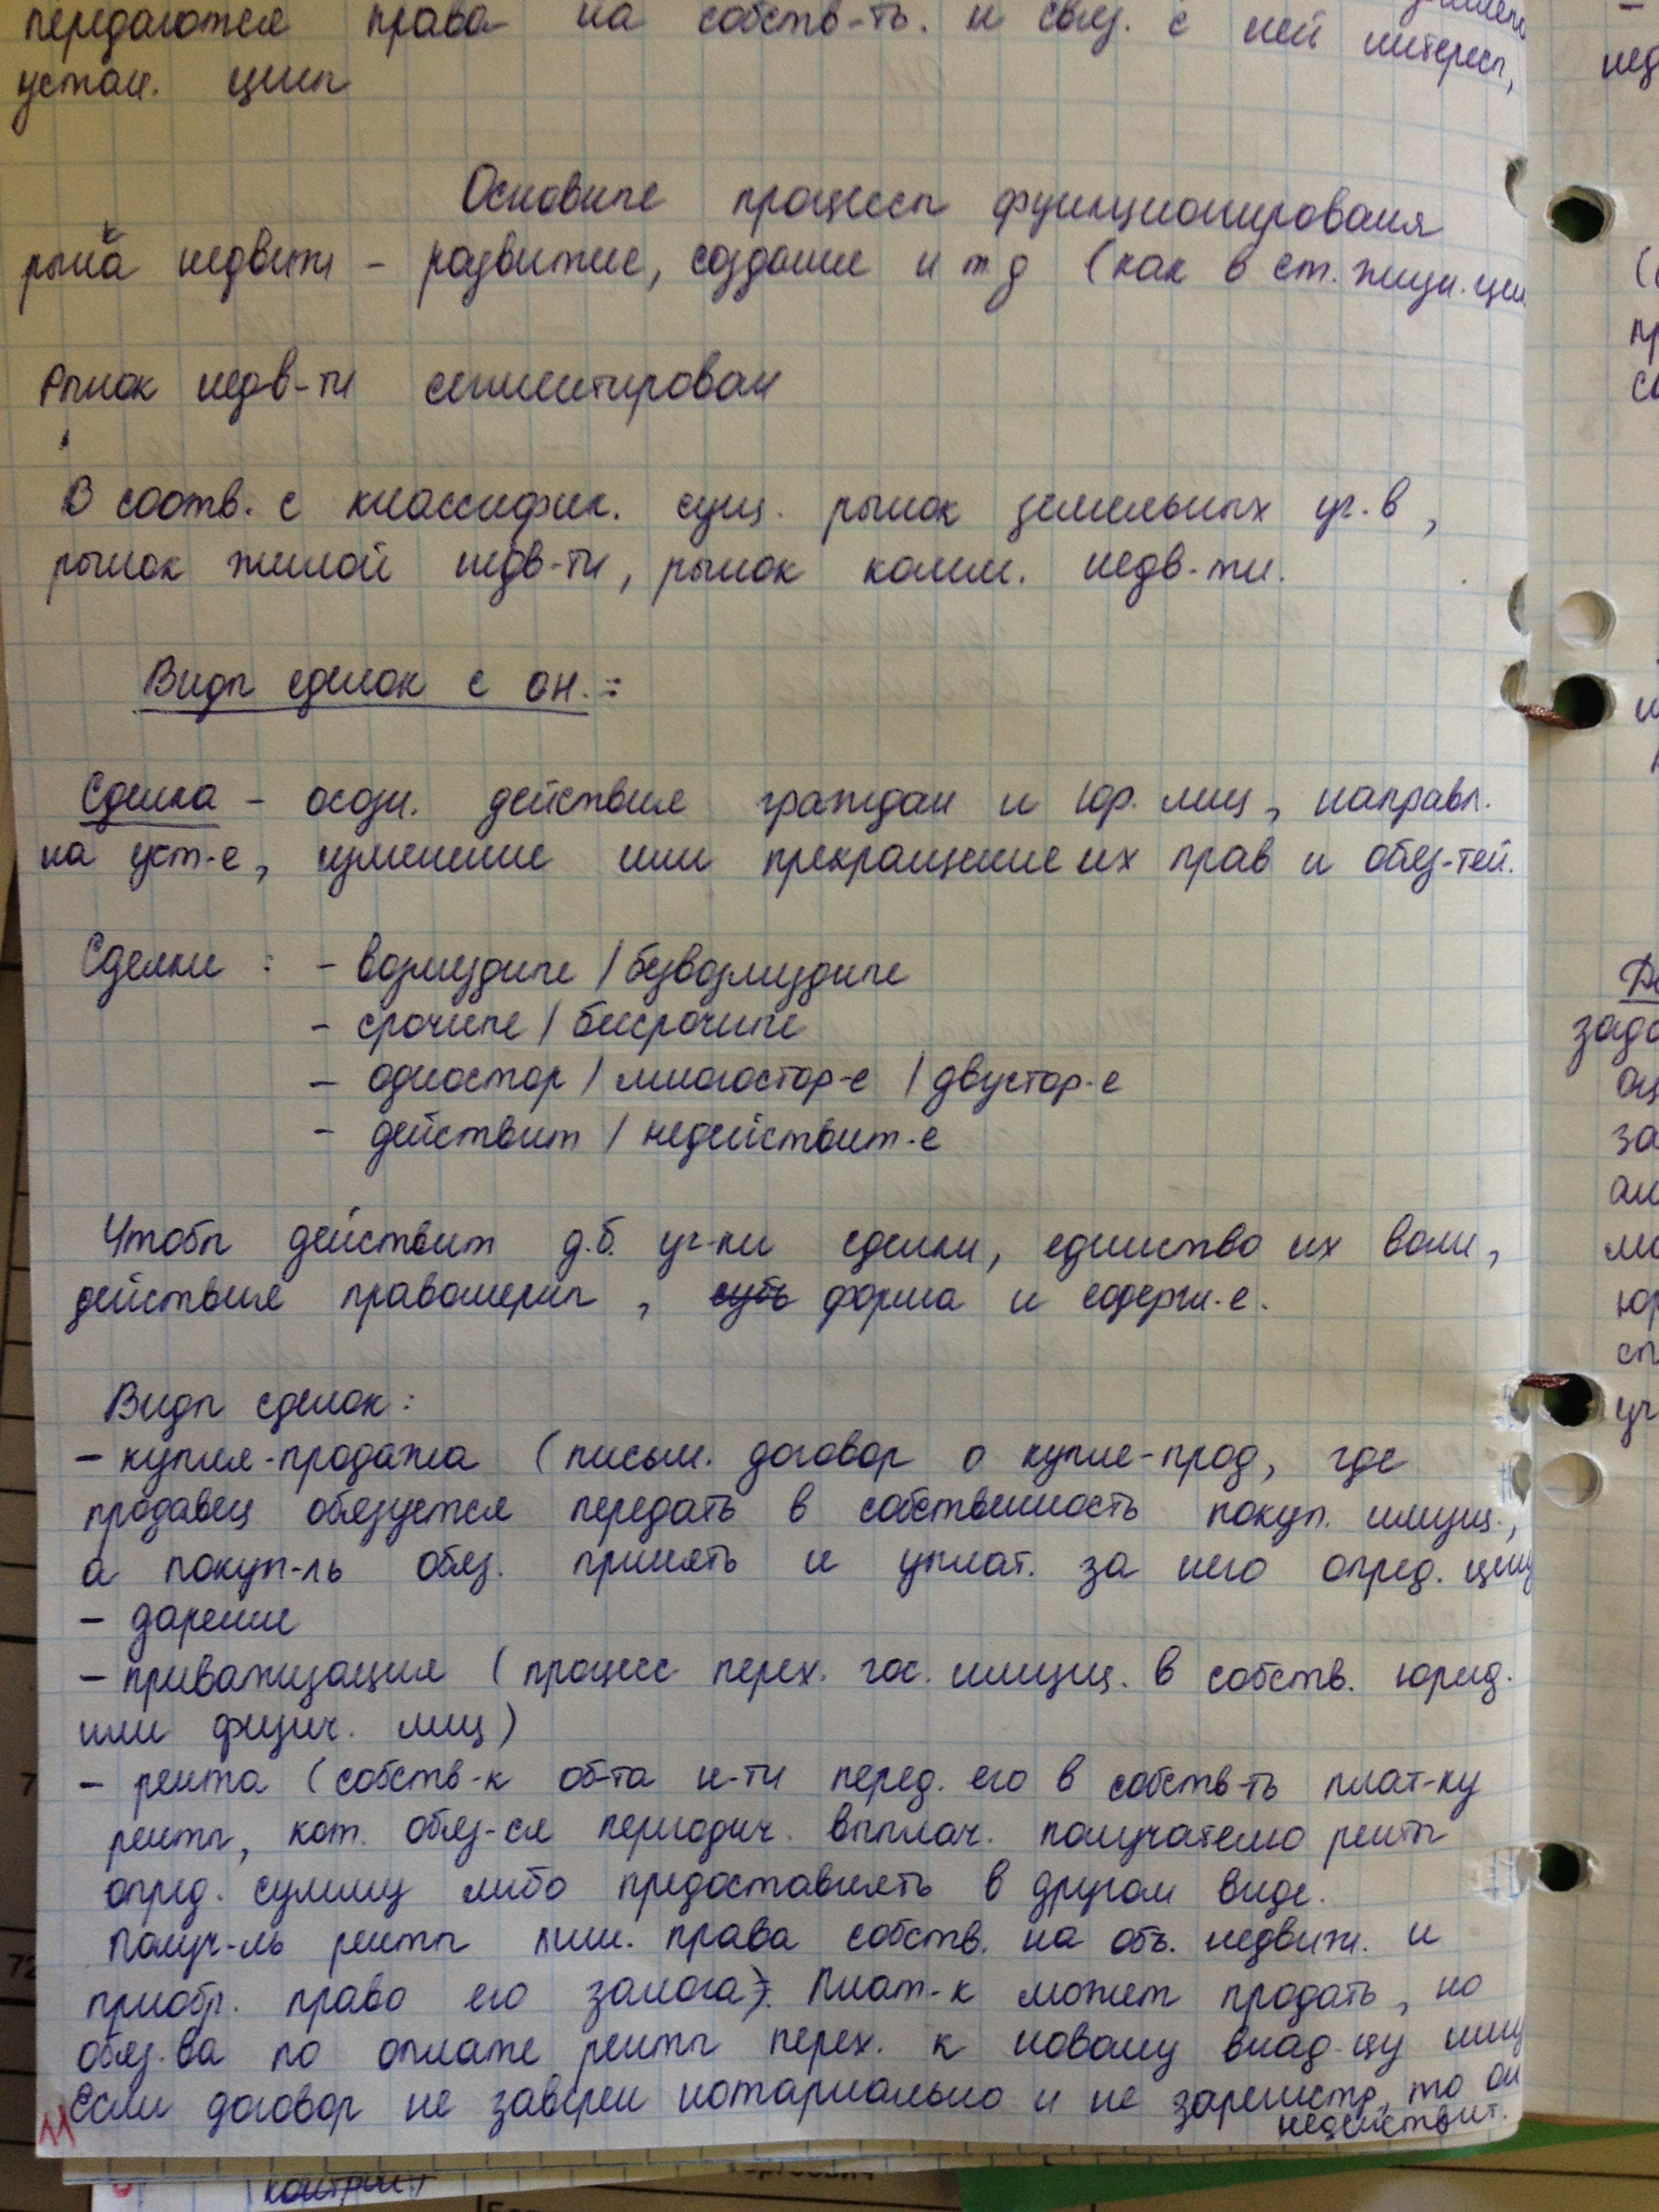 передаются права на собств-ть. и связ. с ней интересы,
устан. цены
Основные процессы функционированя
рынка недвижи - развитие, создание и т д (как в ст. жизн. цик
Рынок недв-ти сегментирован
В соотв. с классифик. сущ. рынок земельных уч.в,
рынок жилой недв-ти, рынок комм. недв-ти.
Виды сделок с он.:
Сделка - осозн. действия граждан и юр. лиц, направл.
на уст-е, изменение или прекращение их прав и обяз-тей.
Сделки : - возмездные / безвозмездные
- срочные / бессрочные
- одностор / многостор-е / двустор-е
- действит / недействит-е
Чтобы действит д.б. уч-ки сделки, единство их воли,
действия правомерны, суть форма и содерж-е.
Виды сделок:
- купля-продажа (письм. договор о купле-прод, где
продавец обязуется передать в собственность покуп. имущ.,
а покуп-ль обяз. принять и уплат. за него опред. цену
- дарение
- приватизация (процесс перех. гос. имущ. в собств. юрид.
или физич. лиц)
- рента (собств-к об-та н-ти перед. его в собств-ть плат-ку
ренты, кот. обяз-ся периодич. выплач. получателю ренты
опред. сумму либо предоставлять в другом виде.
Получ-ль ренты лиш. права собств. на объ. недвиж. и
приобр. право его залога). Плат-к может продать, но
обяз-ва по оплате ренты перех. к новому влад-цу имущ
Если договор не заверен нотариально и не зарегистр, то он
недействит.
11